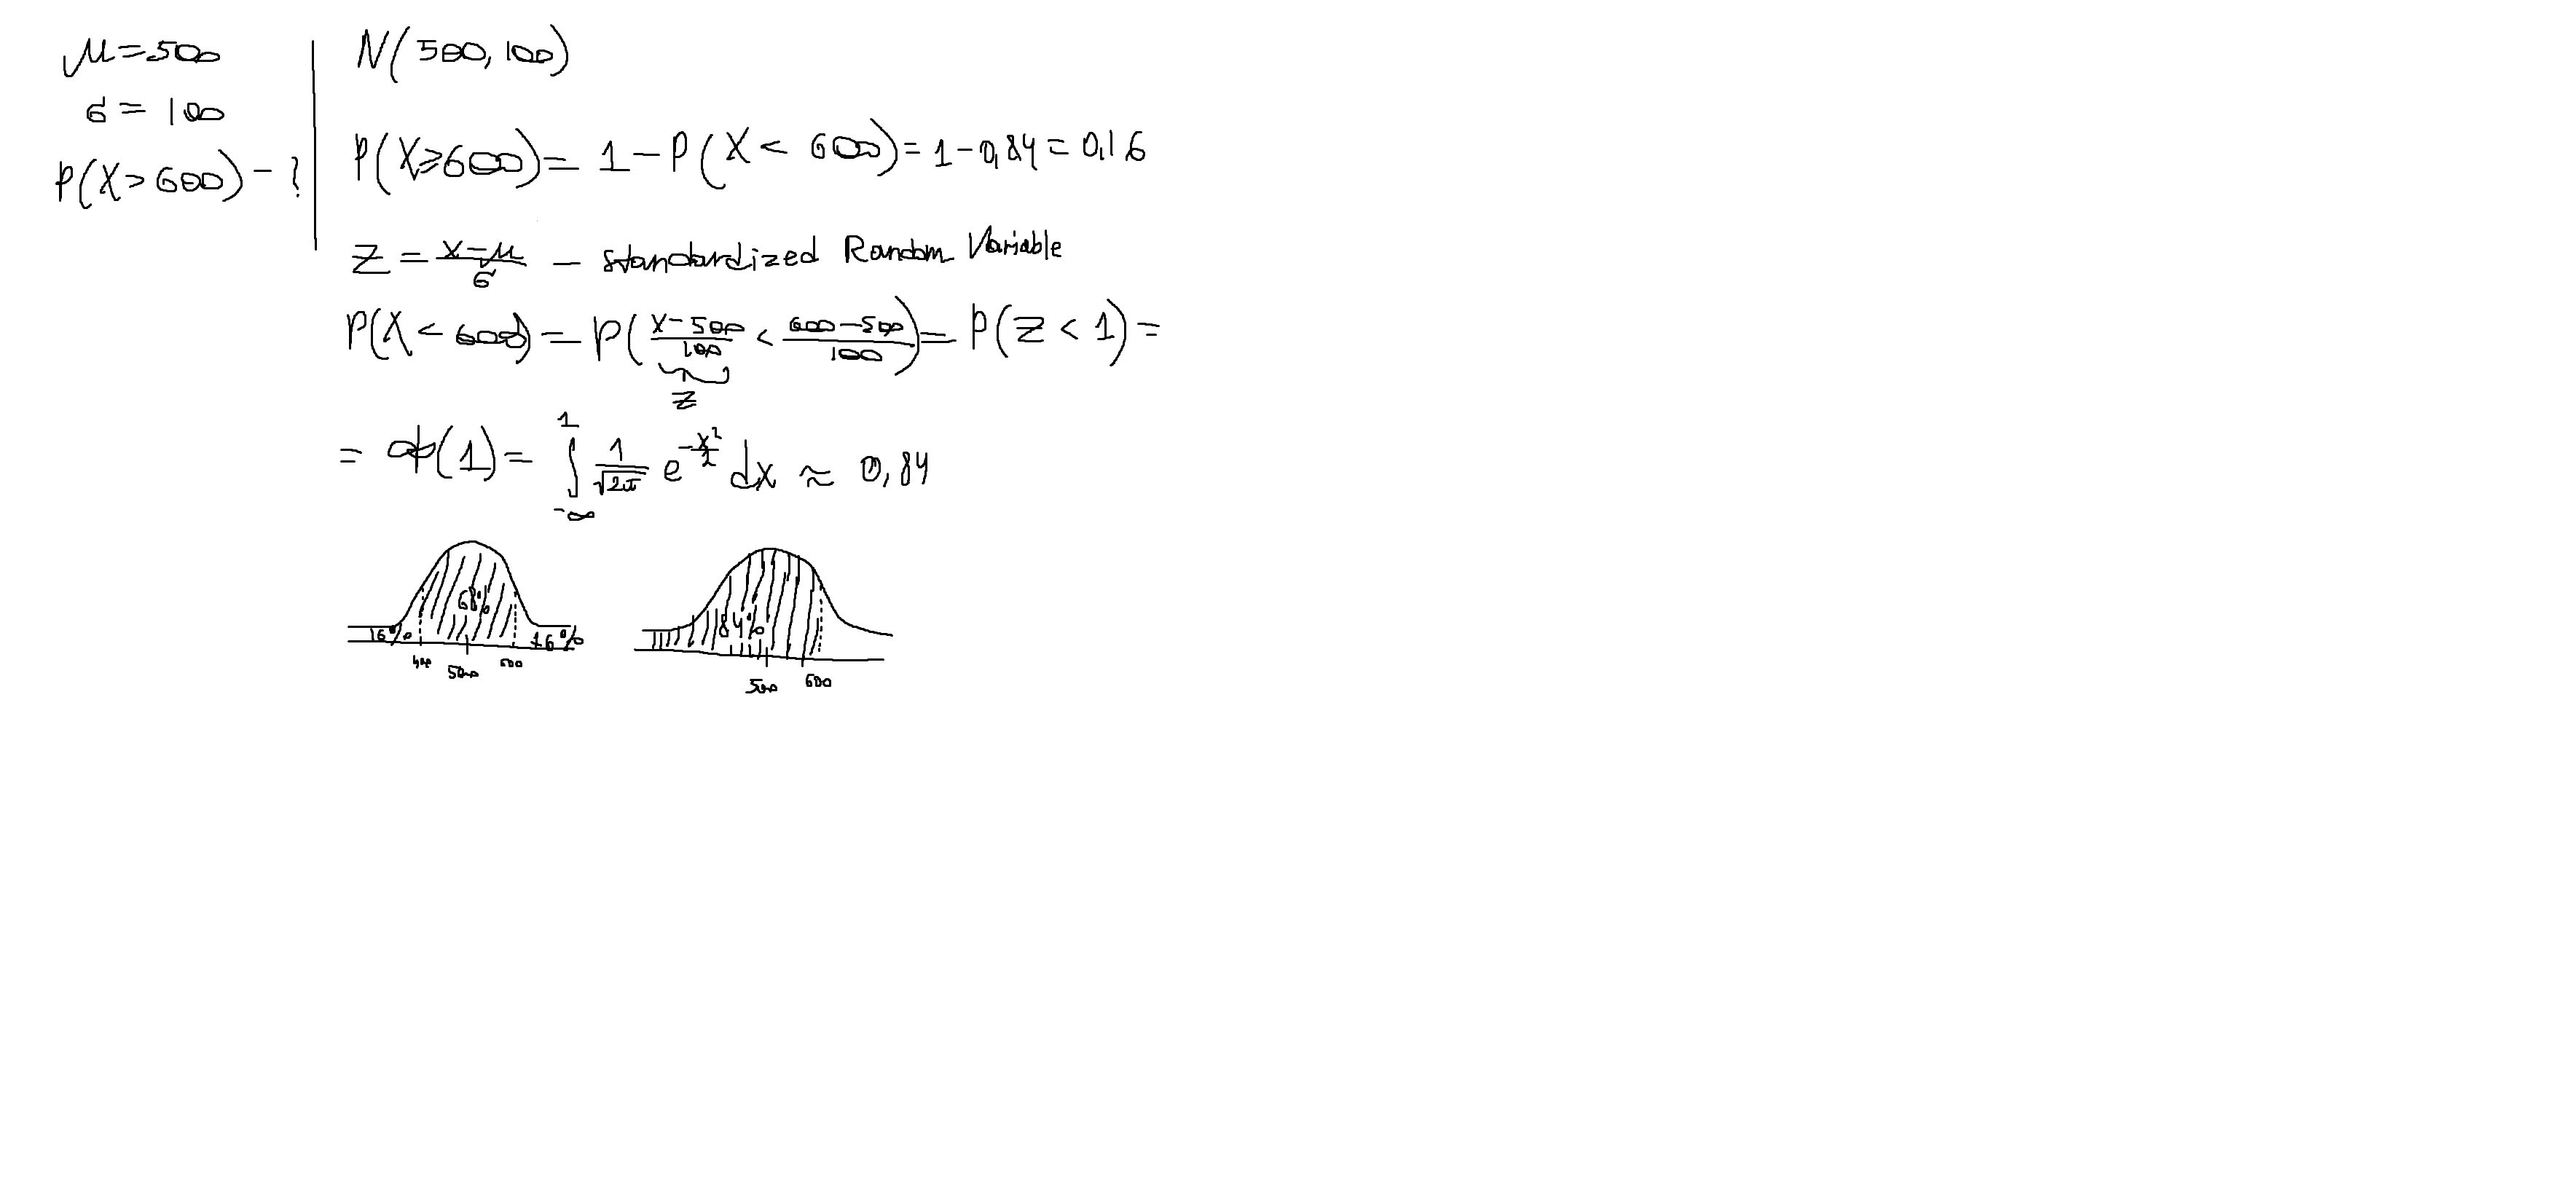 μ=500
σ = 100
P(X>600) - ?
N(500, 100)
P(X≥600) = 1 - P(X < 600) = 1 - 0,84 = 0,16
Z = x-μ/σ - standardized Random Variable
P(X < 600) = P(x-500/100 < 600-500/100) = P(Z < 1) =
Z
= Φ(1) = ∫_{-∞}^{1} 1/√2π e^{-x²/2} dx ≈ 0,84
16% 68% 16%
400 500 600
84%
500 600